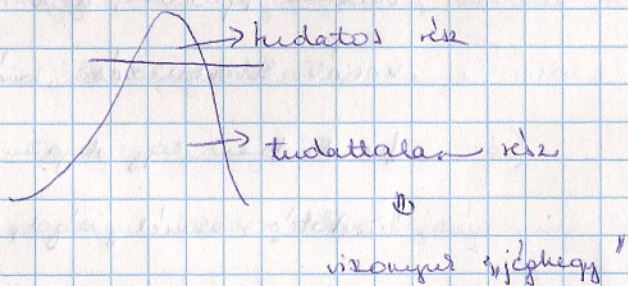 tudatos rész
tudattalan rész
viszonyuk „jéghegy"